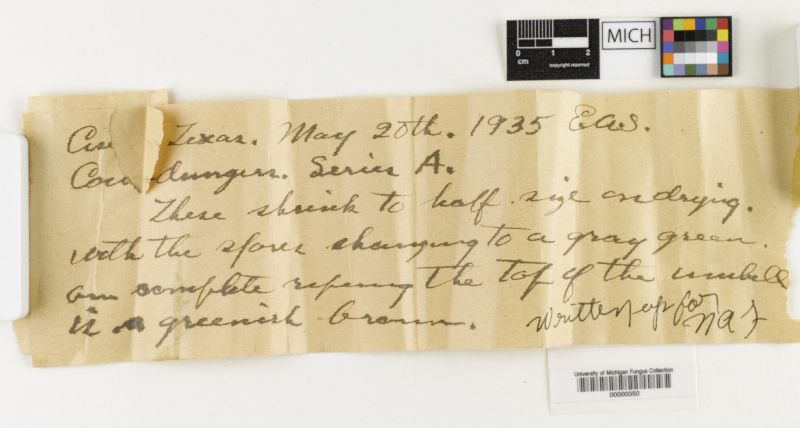 0 1 2
cm
copyright reserved
MICH
Texas. May 20th. 1935 E.A.S.
Cow dungers. Series A.
These shrink to half size on drying.
with the spores changing to a gray green.
on complete ripening the top of the umbell
is a greenish brown.
Written up for
N A F
University of Michigan Fungus Collection
00000350